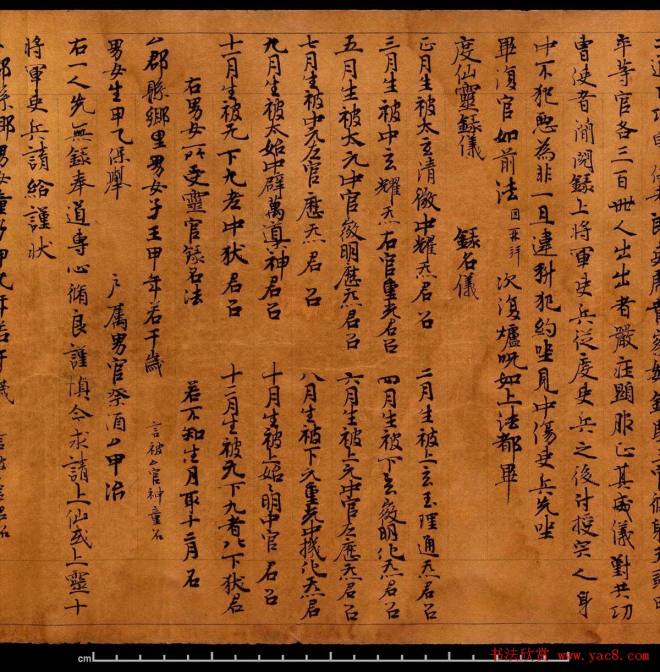 平等官各三百卅人出出者嚴莊顯服正其威儀對共功
曹使者簡閱錄上將軍吏兵從度吏兵之後討授突人身
中不犯惡為非一旦違科犯約坐見中傷吏兵先坐
畢復官如前法 因再拜 次復爐呪如上法都畢
度仙靈錄儀 錄召儀
正月生被太玄清徵中耀炁君召 二月生被上玄玉理通炁君召
三月生被中玄耀炁右官重光君召 四月生被下玄徵明化炁君召
五月生被太元中官徵明應炁君召 六月生被上元中官左應炁君召
七月生被中元左官應炁君召 八月生被下元重光中機化炁君
九月生被太始中辟萬道神君召 十月生被上始明中官君召
十一月生被元下九老中狱君召 十二月生被元下九者下狱君召
右男女所受靈官錄召法 若不知生月取十二月召
厶郡縣鄉里男女子王甲年若干歲 言被厶官神童召
男女生甲乙保舉 户屬男官祭酒厶甲治
右一人先無錄奉道專心脩良謹慎令求請上仙或上靈十
將軍吏兵請給謹狀
cm
书法欣赏 www.yac8.com